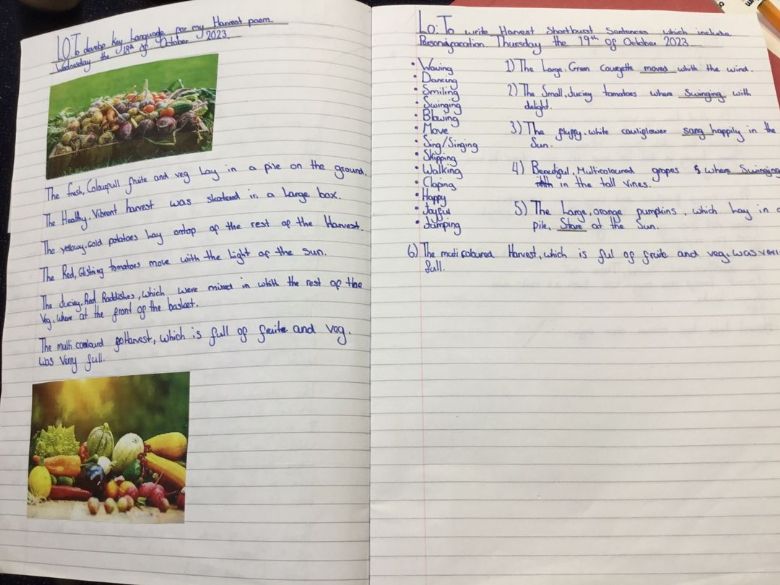 LO: To develop Key Language for my Harvest poem.
Wednesday the 18th of October 2023
The fresh, Colourfull fruite and veg lay in a pile on the ground.
The Healthy, Vibrant harvest was in a large box.
The yellowy, Gold potatoes lay ontop of the rest of the Harvest.
The Red, Glisting tomatoes move with the Light of the Sun.
The Juicey, Red Raddishes, which were mixed in whith the rest of the
Veg. where at the front of the basket.
The multi Harvest, which is full of fruite and Veg.
was Very full.
LO: To write Harvest Shortburst Sentences which include
Thursday the 19th of October 2023
• Waving
• Dancing
• Smiling
• Swinging
• Blowing
• Move
• Sing/Singing
• Skipping
• Walking
• Claping
• Happy
• Joyful
• Jumping
1) The Large, Green Courgette moved whith the wind.
2) The Small, Juicey tomatoes where Swinging with
delight.
3) The fluffy, white cauliflower sang happily in the
Sun.
4) Beautyful, Multicoloured grapes where Swinging
in the tall Vines.
5) The Large, orange pumpkins, which Lay in a
pile, Stare at the Sun.
6) The multi coloured Harvest, which is full of fruite and veg. was very
full.